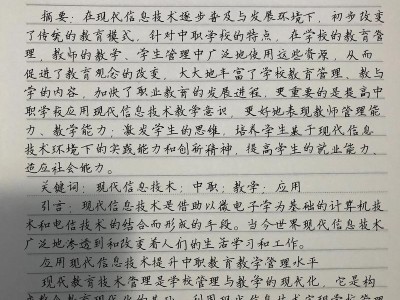 摘要：在现代信息技术逐步普及与发展环境下，初步改变
了传统的教育模式。针对中职学校的特点，在学校的教育管
理，教师的教学、学生管理中广泛地使用这些资源，从而
促进了教育观念的改变，大大地丰富了学校教育管理、教与
学的内容，加快了职业教育的发展进程，更重要的是提高中
职学校应用现代信息技术教学意识，更好地表现教师管理能
力、教学能力；激发学生的思维，培养学生基于现代信息
技术环境下的实践能力和创新精神，提高学生的就业能力、
适应社会能力。
关键词：现代信息技术；中职；教学；应用
引言：现代信息技术是借助以微电子学为基础的计算机技
术和电信技术的结合而形成的手段。当今世界现代信息技术
广泛地渗透到和改变着人们的生活学习和工作。
应用现代信息技术提升中职教育教学管理水平
现代教育技术管理是学校管理与教学的现代化，它是构